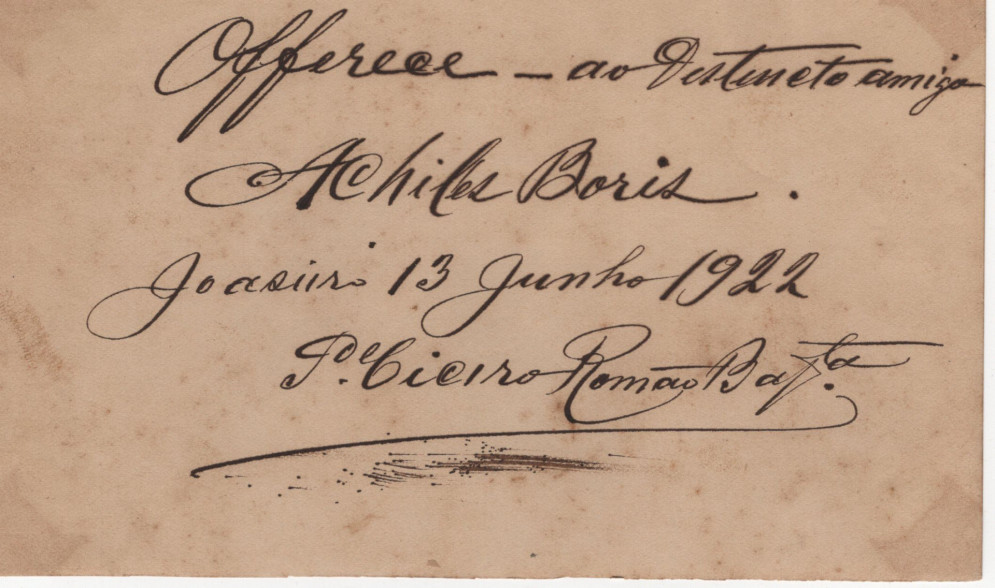 Offerece - ao Distincto amigo
Achiles Boris.
Joaseiro 13 Junho 1922
Pe. Cicero Romão Bapta.